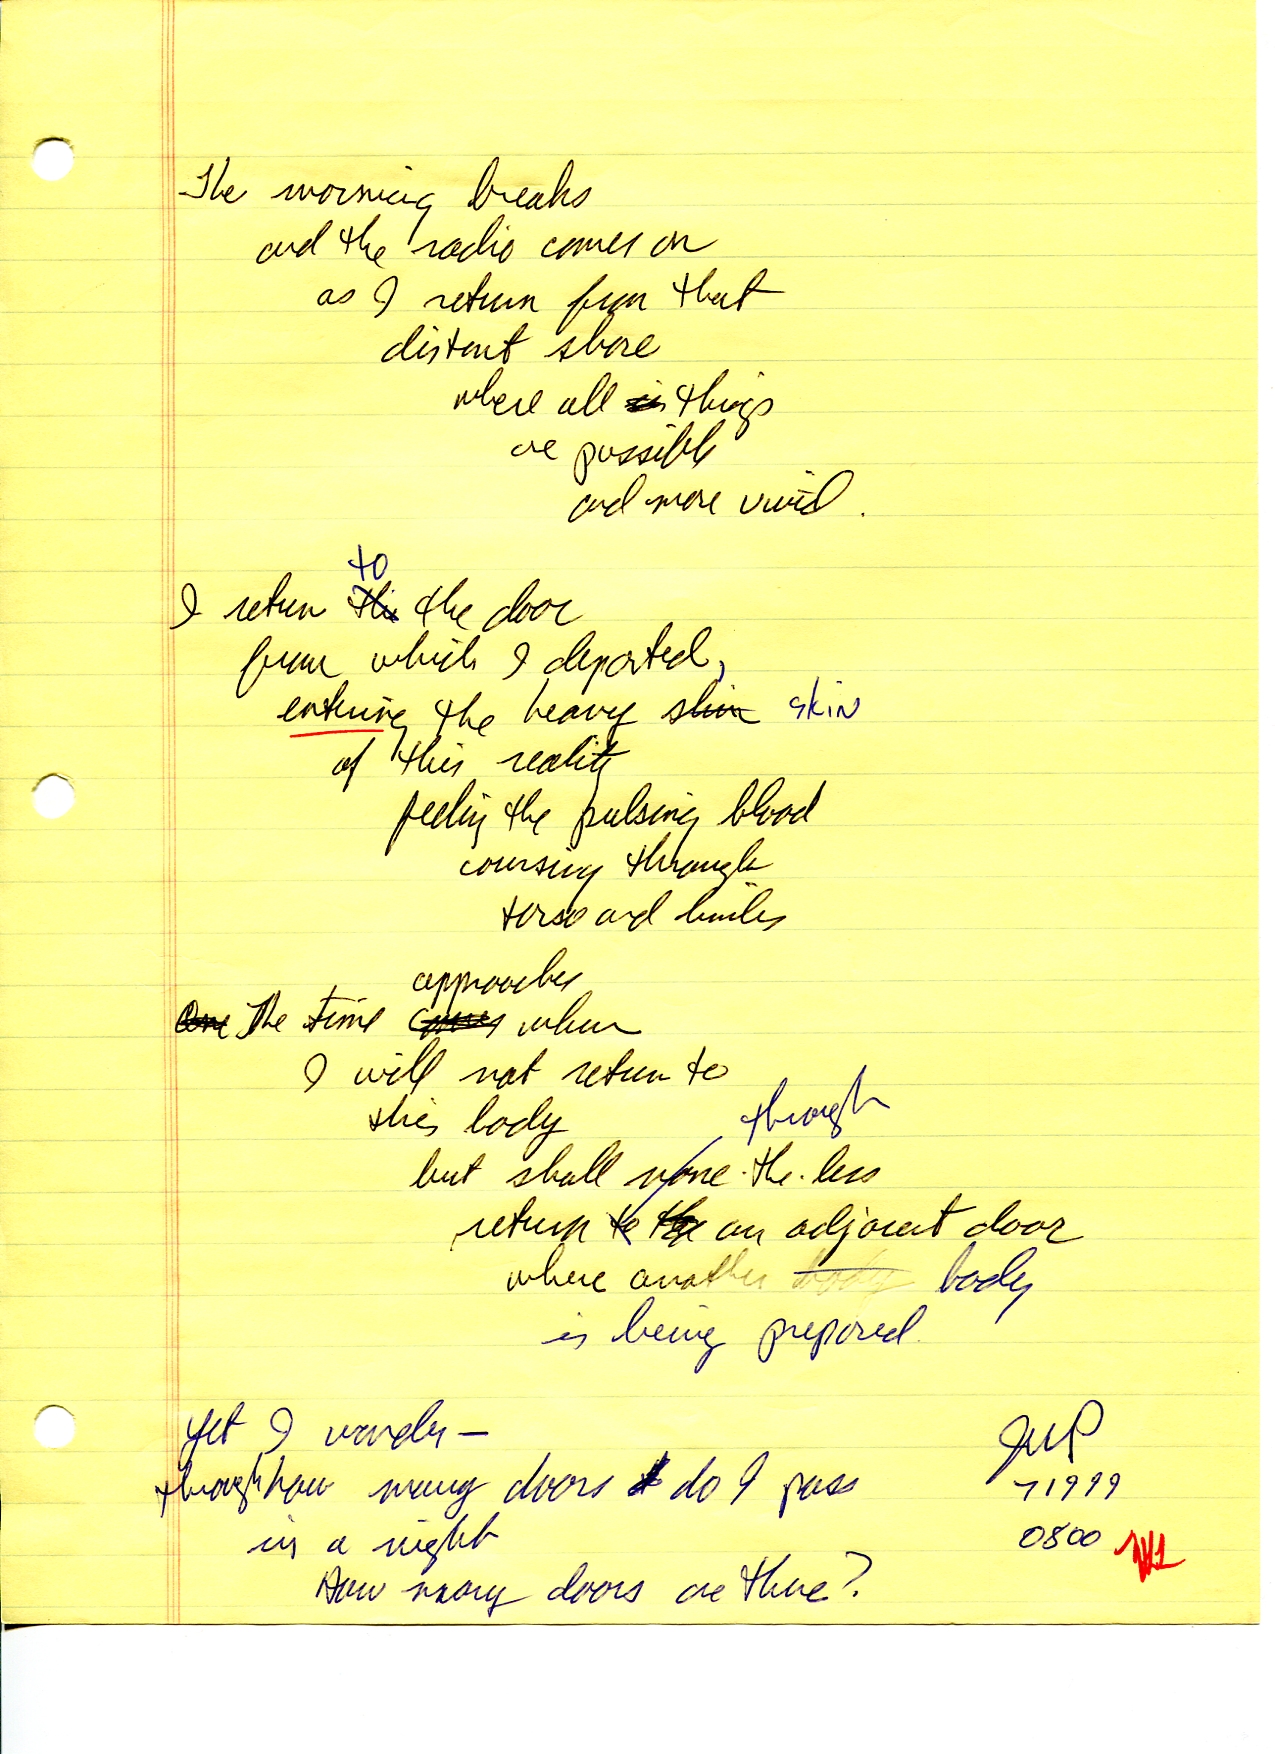 The morning breaks
and the radio comes on
as I return from that
distant shore
where all is things
are possible
and more vivid.
to
I return the door
from which I departed,
entering the heavy skin skin
of this reality
feeling the pulsing blood
coursing through
torso and limbs
approaches
The time comes when
I will not return to
this body
through
but shall none·the·less
return to the an adjacent door
where another body body
is being prepared.
Yet I wonder —
through how many doors do I pass
in a night
How many doors are there?
71999
0800